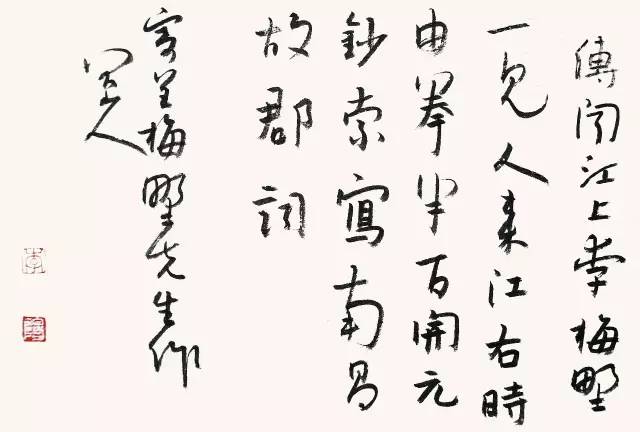 傳聞江上李梅野
一見人來江右時
由拳半百開元
鈔索寫南昌
故郡詞
寄呈梅野先生作
八大山人